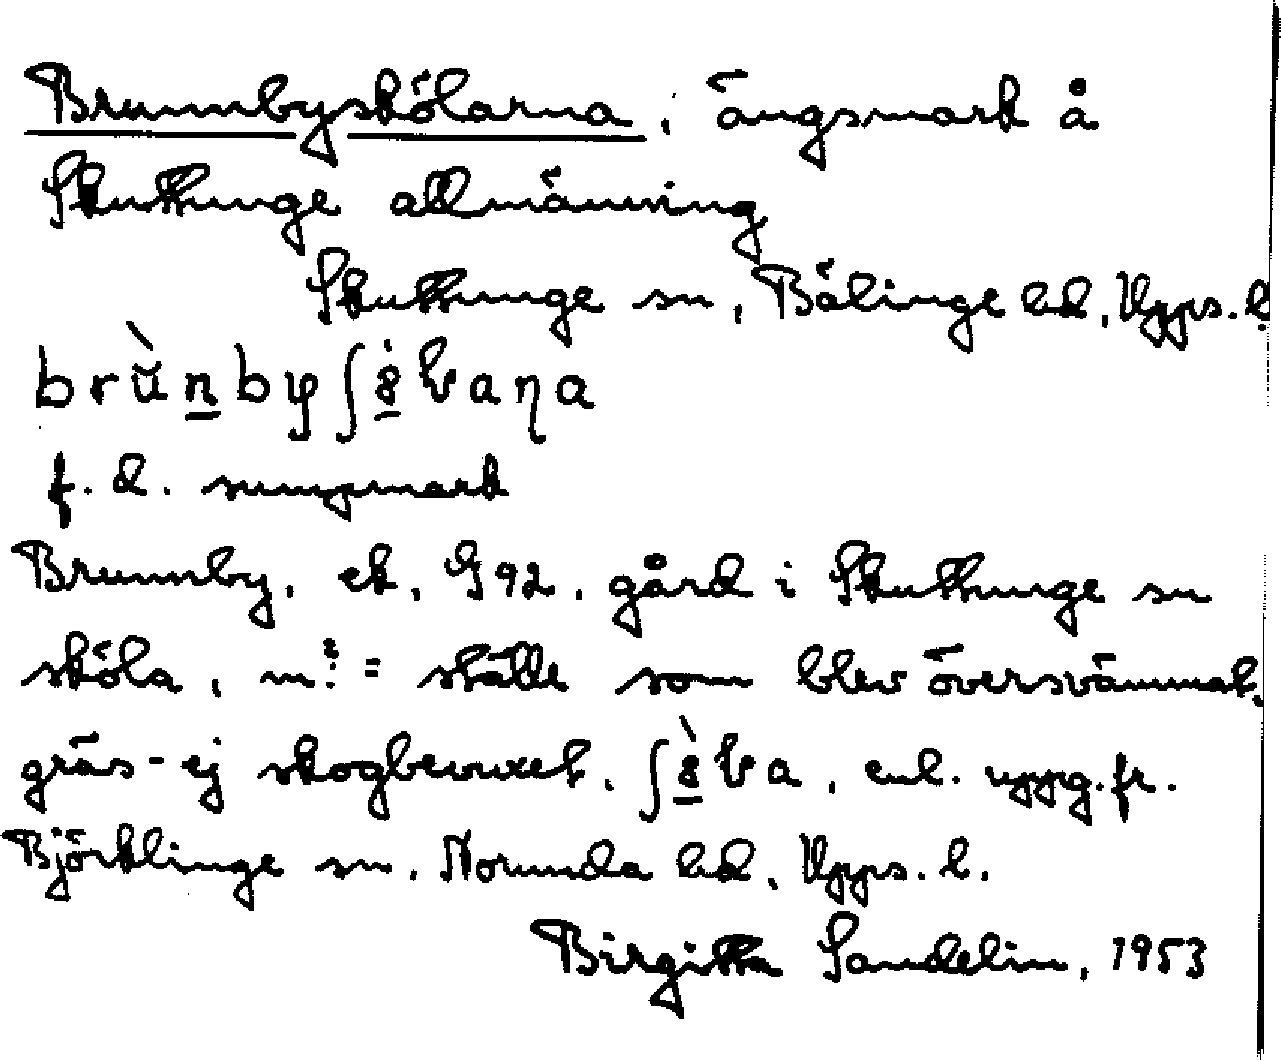 Brunnbyskölarna, ängsmark å
Skuttunge allmänning
Skuttunge sn, Bälinge hd, Upps. l.
f. d. sumpmark
Brunnby, ek, G 92, gård i Skuttunge sn
sköla, m? = ställe som blev översvämmat,
gräs- ej skogbevuxet, enl. uppg. fr.
Björklinge sn, Norunda hd, Upps. l.
Birgitta Sandelin, 1953